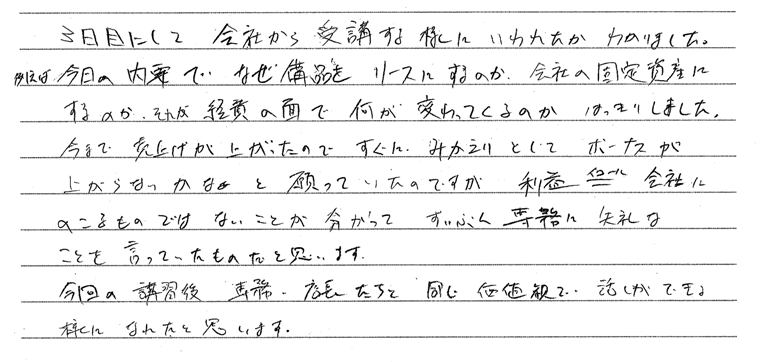 3日目にして 会社から受講する様にいわれたかわかりました。
例えば今日の内要で なぜ備品をリースにするのか、会社の固定資産に
するのか、それが経費の面で何が変わってくるのかはっきりしました。
今まで売上げが上がったので すぐに みかえりとして ボーナスが
上がらないかなぁと願っていたのですが 利益イコール会社に
のこるものではないことが分かって ずいぶん専務に失礼な
ことを言っていたものだと思います。
今回の講習後 専務・店長たちと同じ価値観で話しができる
様になれたと思います。